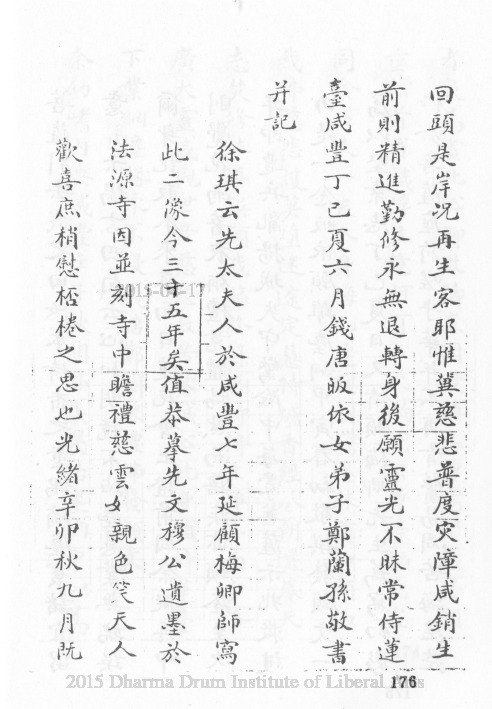 回頭是岸况再生客耶惟冀慈悲普度灾障咸銷生
前則精進勤修永無退轉身後願靈光不昧常侍蓮
臺咸豐丁巳夏六月錢唐皈依女弟子鄭蘭孫敬書
并記
徐琪云先太夫人於咸豐七年延顧梅卿師寫
此二像今三十五年矣值恭摹先文穆公遺墨於
法源寺因並刻寺中瞻禮慈雲如親色笑天人
歡喜庶稍慰桮棬之思也光緒辛卯秋九月既
176
2015 Dharma Drum Institute of Liberal Arts